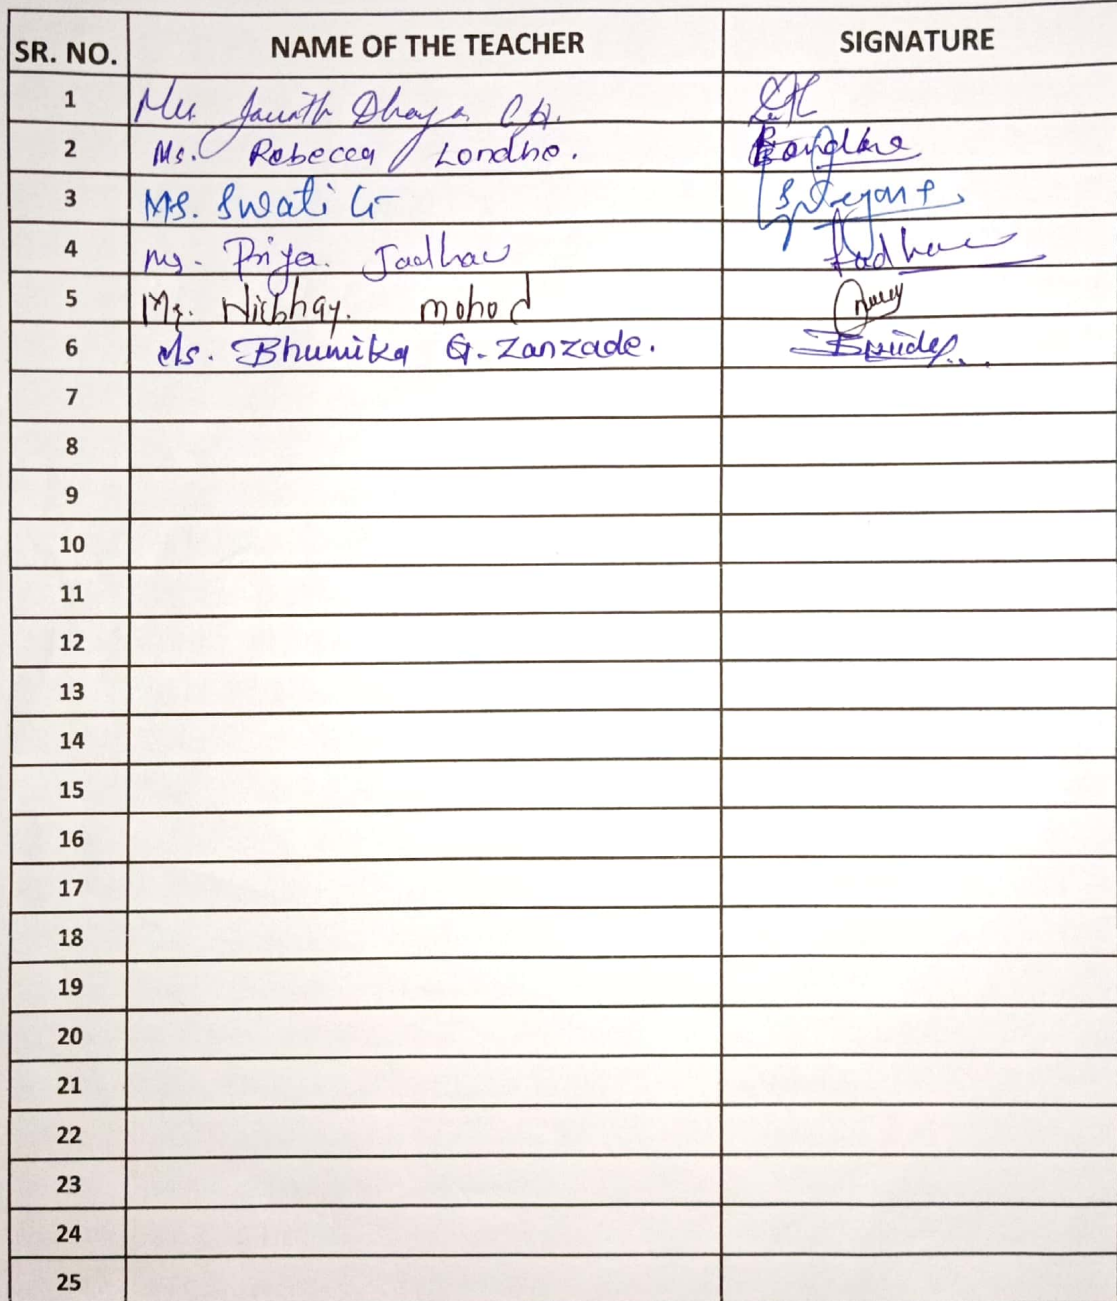 SR. NO. NAME OF THE TEACHER SIGNATURE
1
2 Ms. Rebecca Londhe.
3 Ms. Swati G
4 Ms. Priya. Jadhav Jadhav
5 Mr. Nirbhay. mohod
6 Ms. Bhumika G. Zanzade.
7
8
9
10
11
12
13
14
15
16
17
18
19
20
21
22
23
24
25